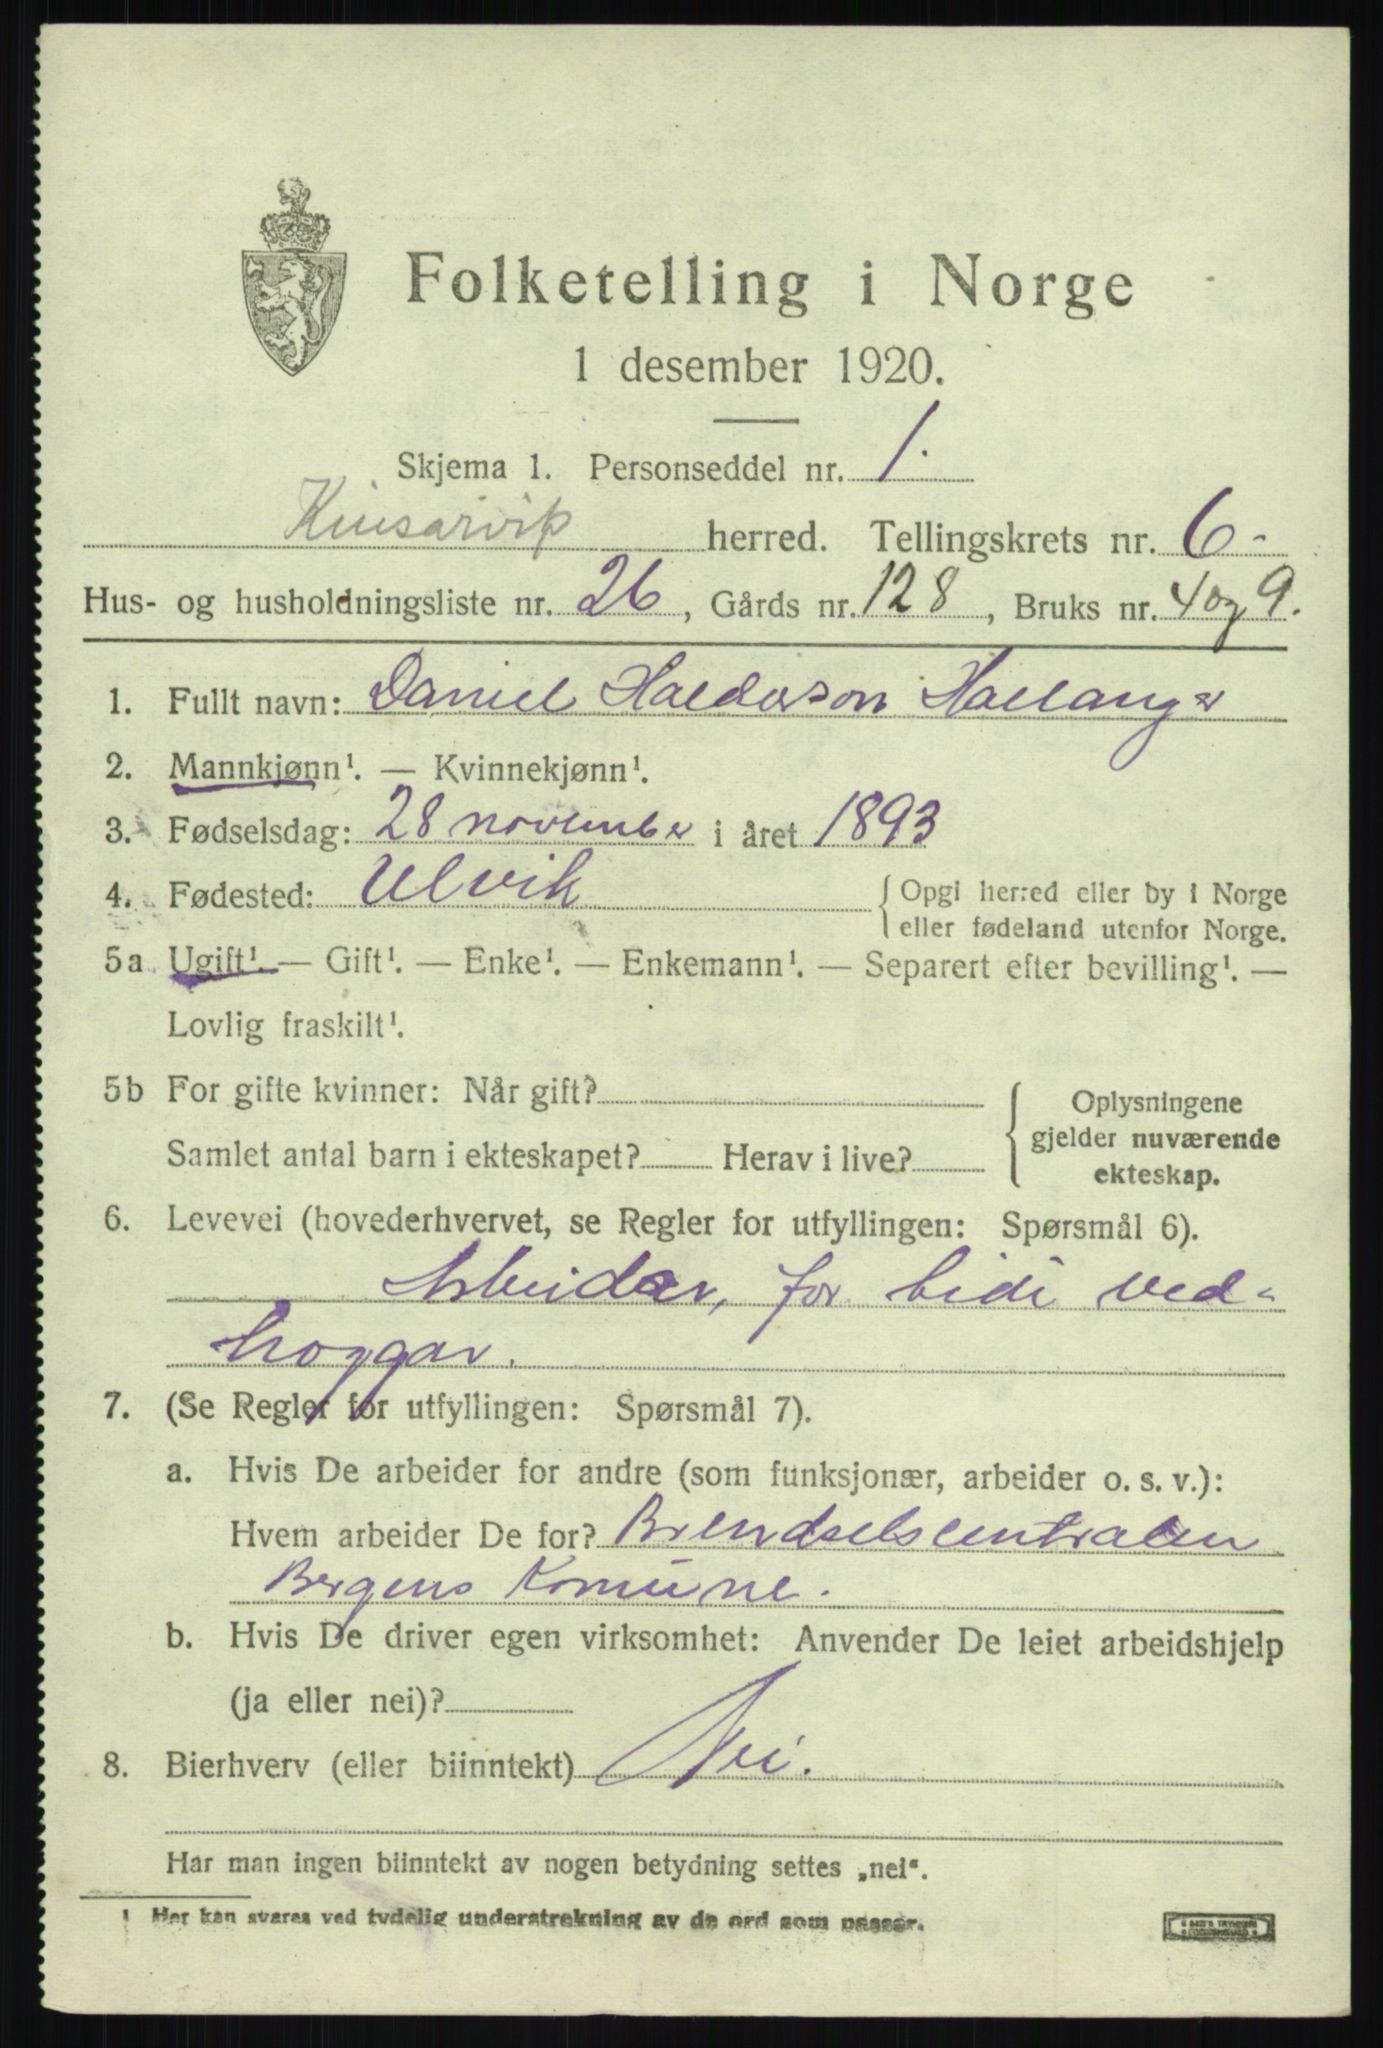 Folketelling i Norge
1 desember 1920.
Skjema 1. Personseddel nr. 1.
Kinsarvik herred. Tellingskrets nr. 6.
Hus- og husholdningsliste nr. 26, Gårds nr. 128, Bruks nr. 4 og 9.
1. Fullt navn: Daniel Haldorson Hallanger
2. Mannkjønn¹. — Kvinnekjønn¹.
3. Fødselsdag: 28 november i året 1893
4. Fødested: Ulvik { Opgi herred eller by i Norge
eller fødeland utenfor Norge.
5a Ugift¹. — Gift¹. — Enke¹. — Enkemann¹. — Separert efter bevilling¹. —
Lovlig fraskilt¹.
5b For gifte kvinner: Når gift?
Samlet antal barn i ekteskapet? Herav i live?
Oplysningene
gjelder nuværende
ekteskap.
6. Levevei (hovederhvervet, se Regler for utfyllingen: Spørsmål 6).
Arbeidar, for tidi ved-
hoggar.
7. (Se Regler for utfyllingen: Spørsmål 7).
a. Hvis De arbeider for andre (som funksjonær, arbeider o. s. v.):
Hvem arbeider De for? Brendselscentralen
Bergens Komune.
b. Hvis De driver egen virksomhet: Anvender De leiet arbeidshjelp
(ja eller nei)?
8. Bierhverv (eller biinntekt) Nei.
Har man ingen biinntekt av nogen betydning settes „nei“.
1 Her kan svares ved tydelig understrekning av de ord som passer.